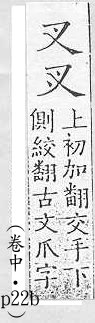 叉㕚
上初加翻交手下
側絞翻古文爪字
(卷中・p22b)